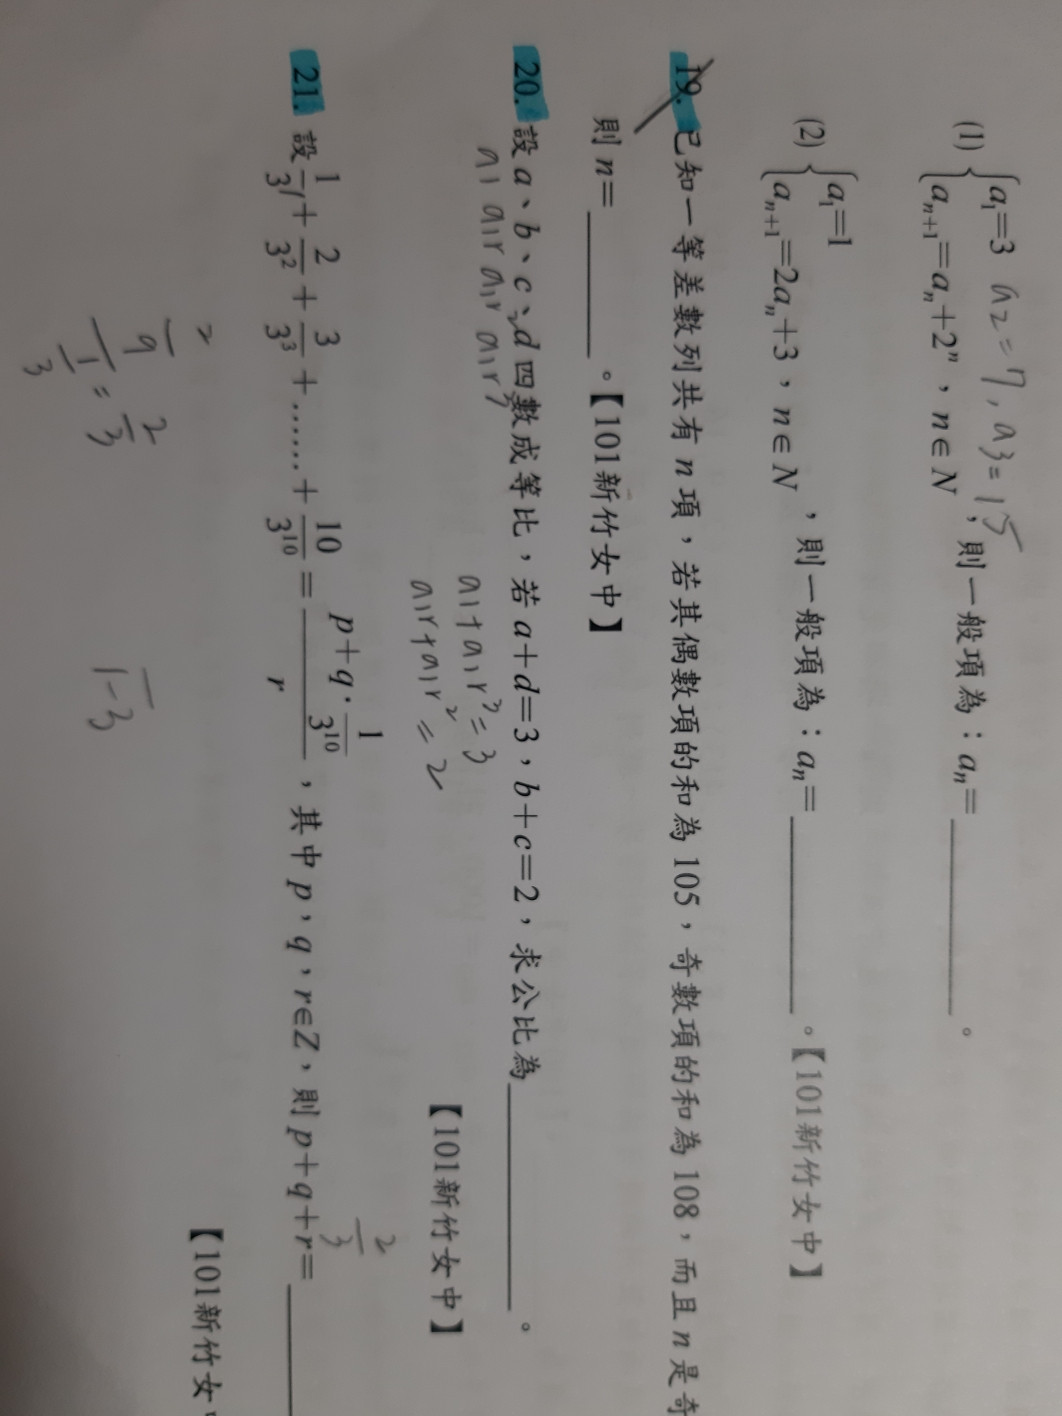 (1) { a₁=3
a₂=7, a₃=15
aₙ₊₁=aₙ+2ⁿ，n∈N ，則一般項為：aₙ=________。
(2) { a₁=1
aₙ₊₁=2aₙ+3，n∈N ，則一般項為：aₙ=________。【101新竹女中】
19. 已知一等差數列共有 n 項，若其偶數項的和為 105，奇數項的和為 108，而且 n 是奇
則 n=________。【101新竹女中】
20. 設 a、b、c、d 四數成等比，若 a+d=3，b+c=2，求公比為________。
a₁ a₁r a₁r² a₁r³
a₁+a₁r³=3
a₁r+a₁r²=2
【101新竹女中】
21. 設 1/3+2/3²+3/3³+……+10/3¹⁰=(p+q·1/3¹⁰)/r，其中 p，q，r∈Z，則 p+q+r=________
2/3
【101新竹女
2
9
1/3
= 2/3
1-3